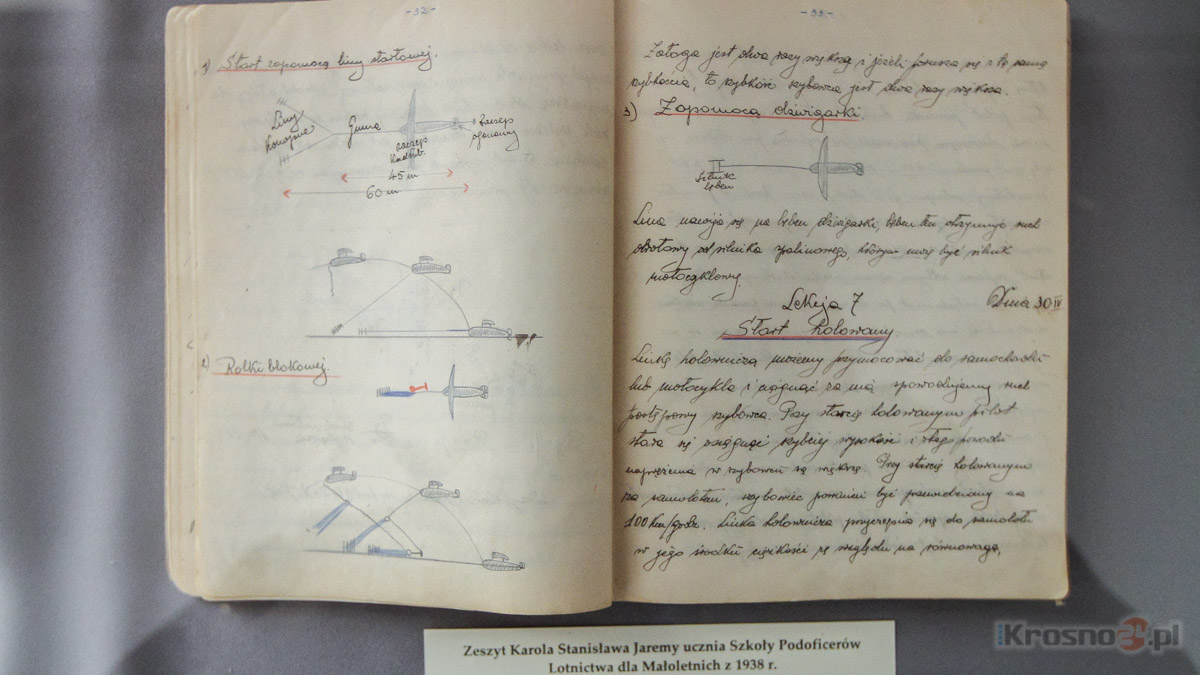 -32-
1) Start zapomocą liny startowej.
Liny
Konopne
Guma
zaczep
Kadłub.
Zaczep
ogonowy
45 m
60 m
2) Rolki blokowej.
-33-
Załoga jest dwa razy większa i jeżeli porusza się z tą samą
szybkością, to szybkość szybowca jest dwa razy większa.
3) Zapomocą dźwigarki.
Silnik
bęben
Lina nawija się na bęben dźwigarki, bęben ten otrzymuje ruch
obrotowy od silnika spalinowego, którym może być silnik
motocyklowy.
Lekcja 7
Dnia 30 IV
Start holowany.
Linkę holowniczą możemy przymocować do samochodu
lub motocykla i ciągnąć za nią spowodujemy ruch
postępowy szybowca. Przy starcie holowanym pilot
stara się osiągnąć szybciej wysokość i z tego powodu
naprężenia w szybowcu są większe. Przy starcie holowanym
za samolotem, szybowiec powinien być przewidziany na
100 km/godz. Linka holownicza przyczepia się do samolotu
w jego środku ciężkości ze względu na równowagę,
Zeszyt Karola Stanisława Jaremy ucznia Szkoły Podoficerów
Lotnictwa dla Małoletnich z 1938 r.
Krosno24.pl